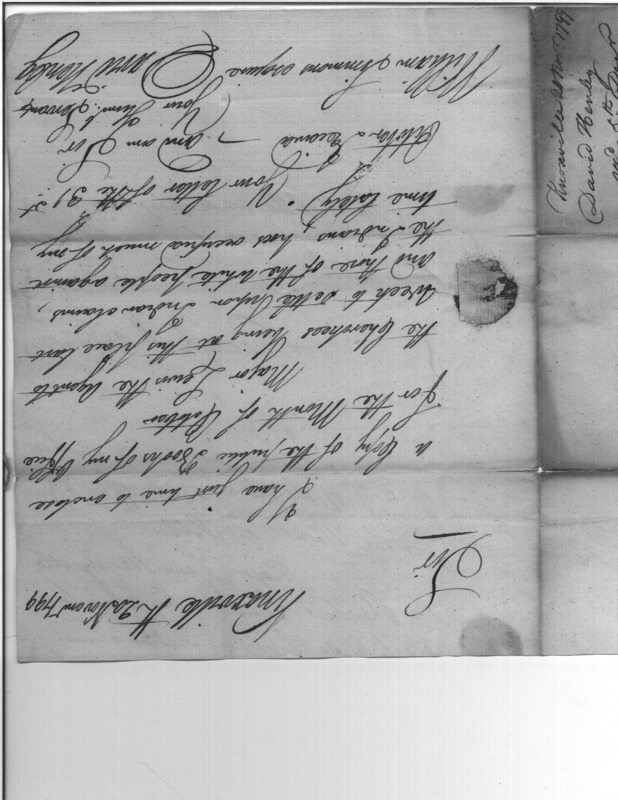 Knoxville 20 Novem 1799
Sir
I have just time to enclose
a Copy of the public Books of my Office
for the Month of October
Major Lewis the Agent to
the Cherokees being at this place last
week to settle Indian claims,
and those of the white people against
the Indians, has occupied much of my
time lately. Your letter of the 31st
October I received
I am Sir
Your Hum. Servant
David Henley
William Simmons esquire
Knoxville 20 Nov 1799
David Henley